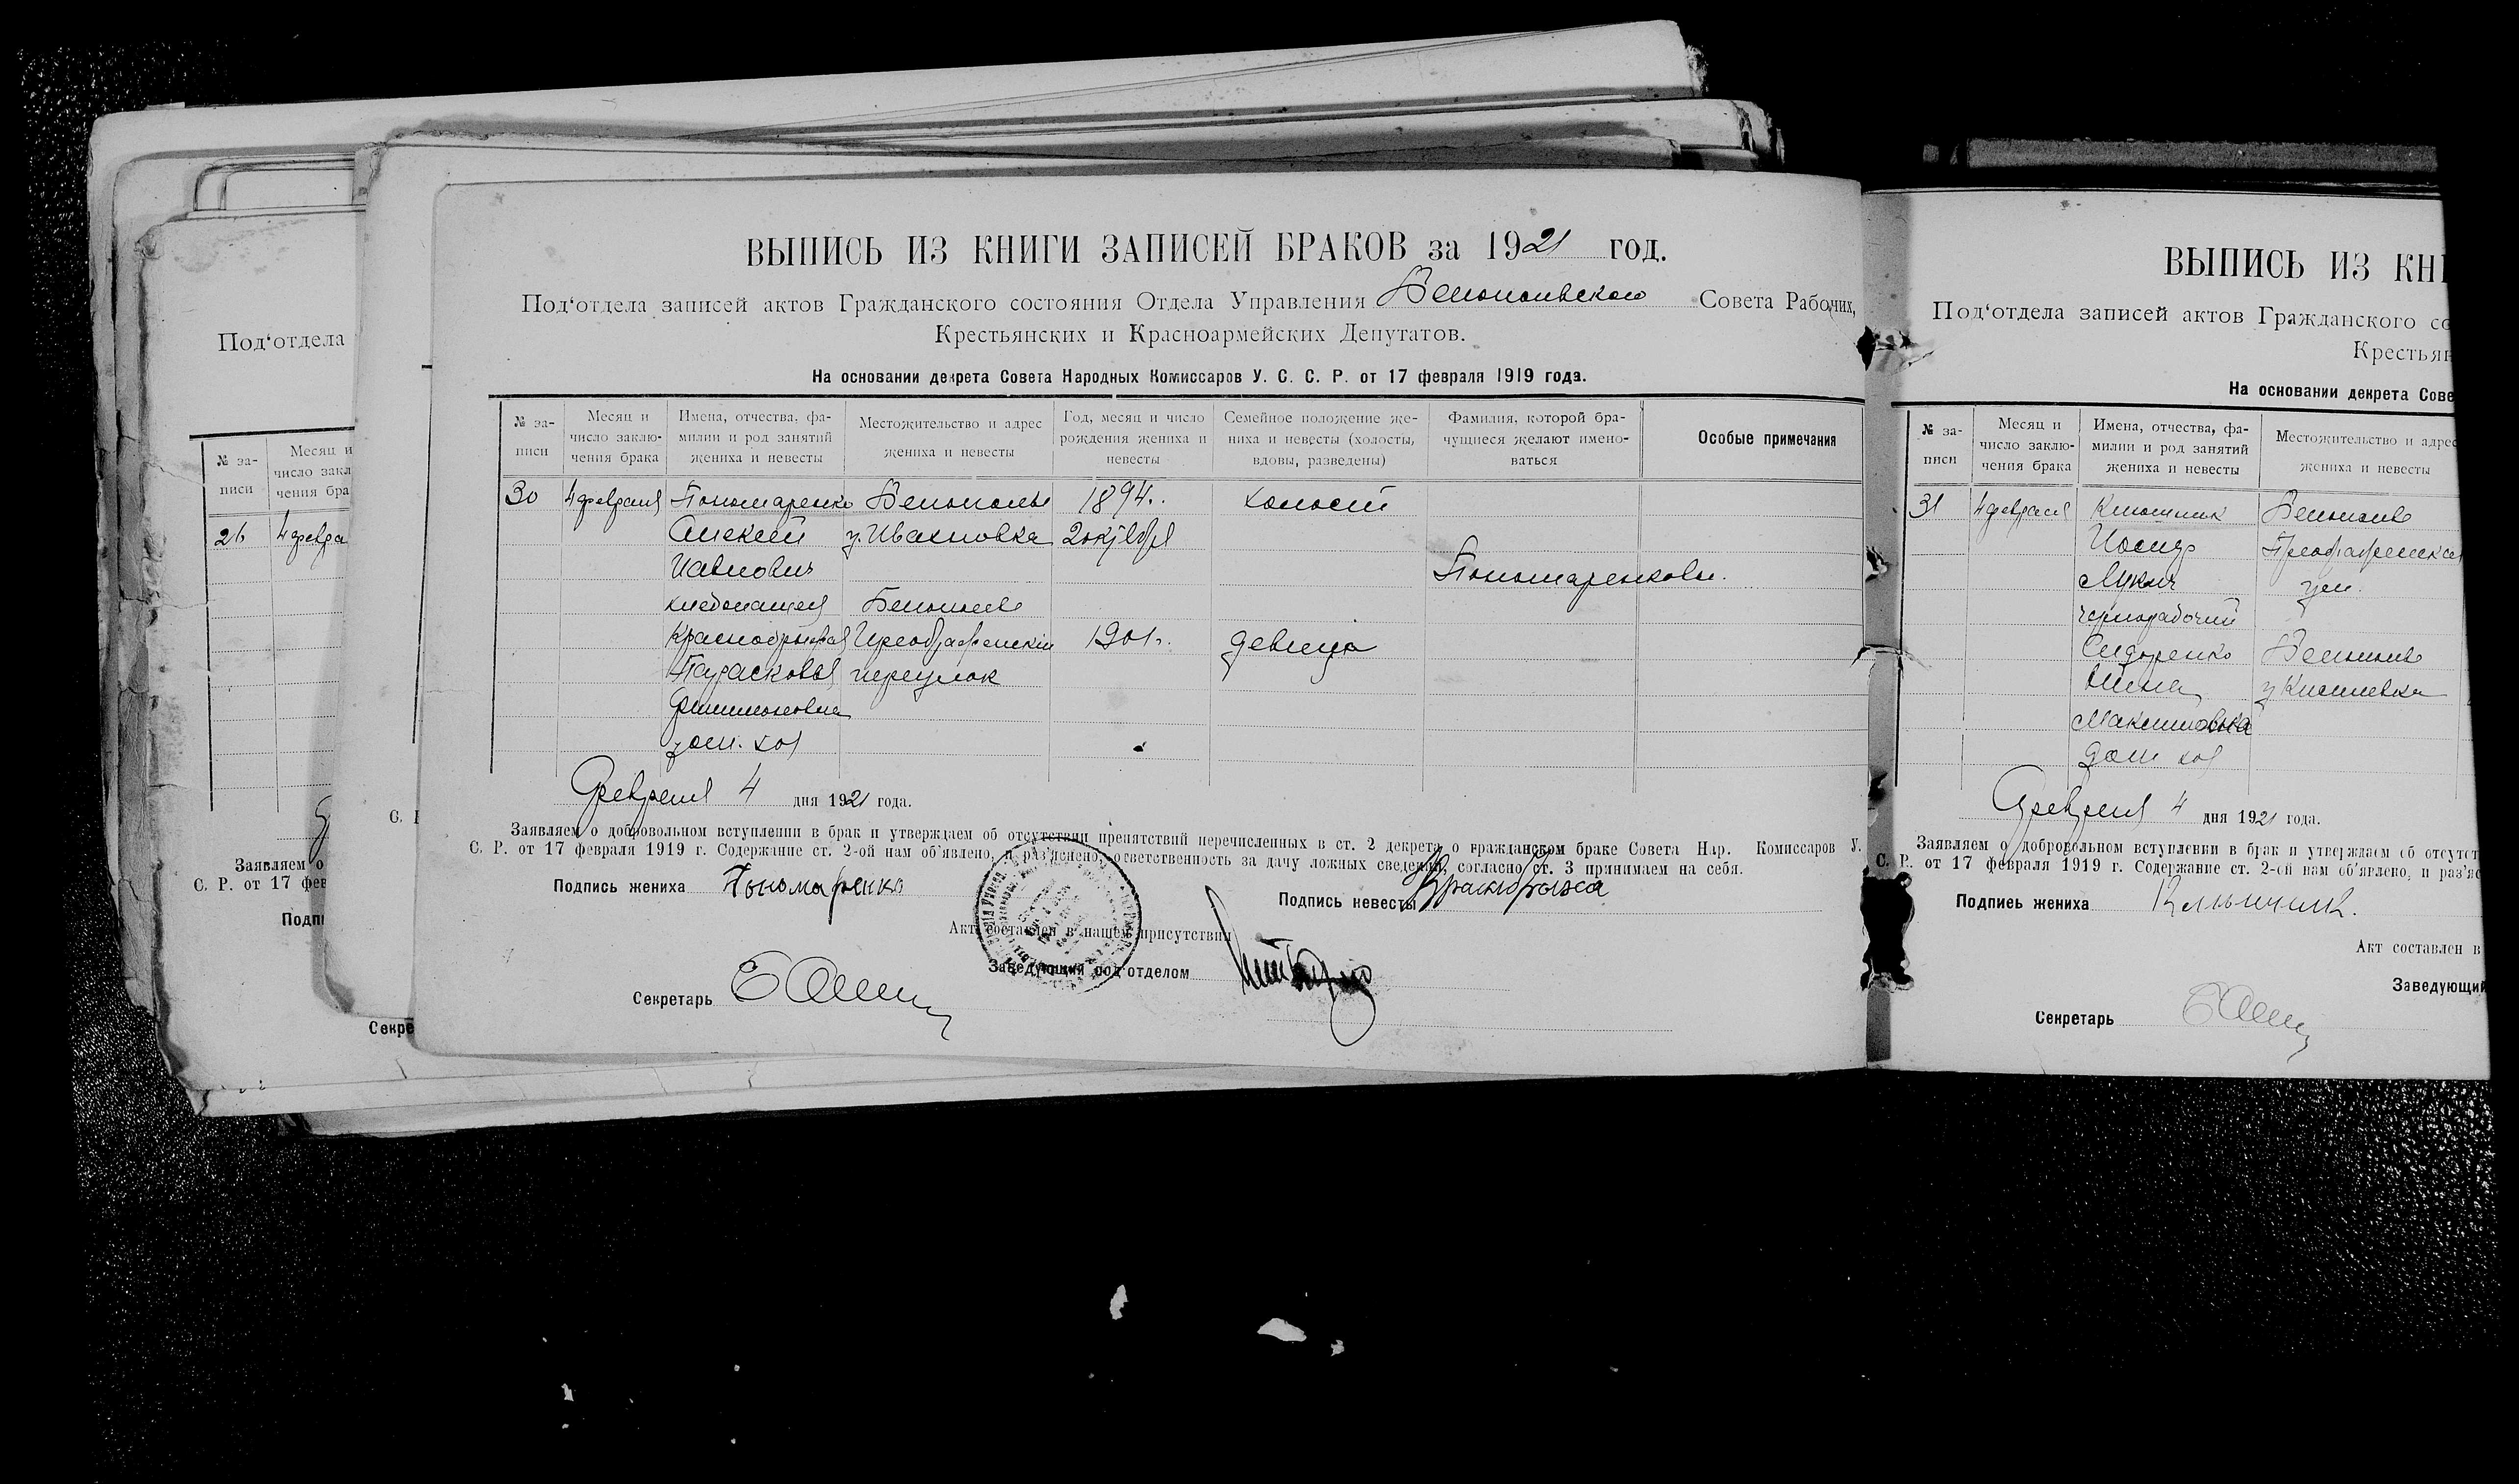 ВЫПИСЬ ИЗ КНИГИ ЗАПИСЕЙ БРАКОВ за 1921 год.
Под‘отдела записей актов Гражданского состояния Отдела Управления Белопольского Совета Рабочих,
Крестьянских и Красноармейских Депутатов.
На основании декрета Совета Народных Комиссаров У. С. С. Р. от 17 февраля 1919 года.
№ за-писи
Месяц и число заклю-чения брака
Имена, отчества, фа-милии и род занятий жениха и невесты
Местожительство и адрес жениха и невесты
Год, месяц и число рождения жениха и невесты
Семейное положение же-ниха и невесты (холосты, вдовы, разведены)
Фамилия, которой бра-чущиеся желают имено-ваться
Особые примечания
30 4 февраля Пономаренко Белополье 1894. холост
Алексей у. Ивановка 2 октября
Павлович Пономаренковы.
хлебопашец Белополье
Преображенский 1901. девица
Парасковья переулок
Филимоновна
дом. хоз
Февраля 4 дня 1921 года.
Заявляем о добровольном вступлении в брак и утверждаем об отсутствии препятствий перечисленных в ст. 2 декрета о гражданском браке Совета Нар. Комиссаров У.
С. Р. от 17 февраля 1919 г. Содержание ст. 2-ой нам об‘явлено, и раз‘яснено, ответственность за дачу ложных сведений, согласно ст. 3 принимаем на себя.
Подпись жениха Пономаренко
Подпись невесты
Акт составлен в нашем присутствии
Заведующий под‘отделом
Секретарь
ВЫПИСЬ ИЗ КНИ
Под‘отдела записей актов Гражданского со
Крестьян
На основании декрета Сове
№ за-писи
Месяц и число заклю-чения брака
Имена, отчества, фа-милии и род занятий жениха и невесты
Местожительство и адрес жениха и невесты
31 4 февраля Белополье
Иосиф Преображенская
Лукич ул.
чернорабочий
Сидоренко Белополье
Максимовна
дом хоз
Февраля 4 дня 1921 года.
Заявляем о добровольном вступлении в брак и утверждаем об отсутст
С. Р. от 17 февраля 1919 г. Содержание ст. 2-ой нам об‘явлено, и раз‘яс
Подпись жениха
Акт составлен в
Заведующий
Секретарь
Под‘отдела
№ за-писи
Месяц и число закл чения бра
26 4 февра
Заявляем о
С. Р. от 17 фев
Подпи
Секре